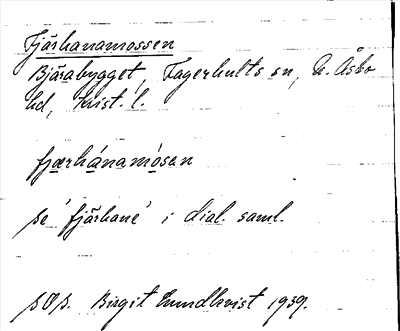 Fjärhanamossen
Bjärabygget, Fagerhults sn, N. Åsbo
hd, Krist. l.
fjærhánamósan
se 'fjärhane' i dial. saml.
Birgit Lundkvist 1939.